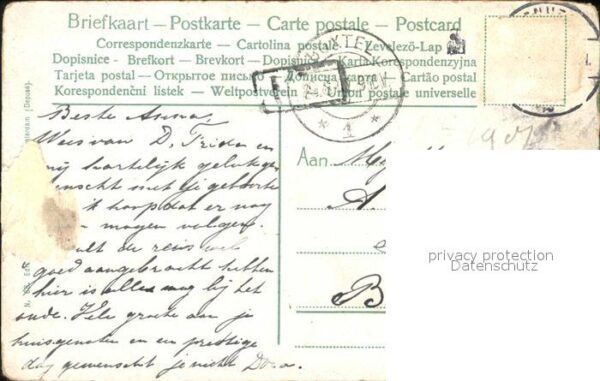 Briefkaart — Postkarte — Carte postale — Postcard
Correspondenzkarte — Cartolina postale — Levelező-Lap
Dopisnice - Brefkort — Brevkort - Dopisnica - Karta Korespondenzyjna
Tarjeta postal — Открытое письмо — Дописна карта — Cartão postal
Korespondenční listek — Weltpostverein — Union postale universelle
BOXTEL
T
* 1 *
1907
Beste Anna,
Wees van D, Frida en
mij hartelijk geluk
wenscht met je geboorte
ik hoop dat er nog
mogen volgen.
de reis
goed aangebracht hebben
hier is alles nog bij het
oude. Vele groete aan je
huisgenooten en een prettige
dag gewenscht je nicht Dora.
Aan
A
B
privacy protection
Datenschutz